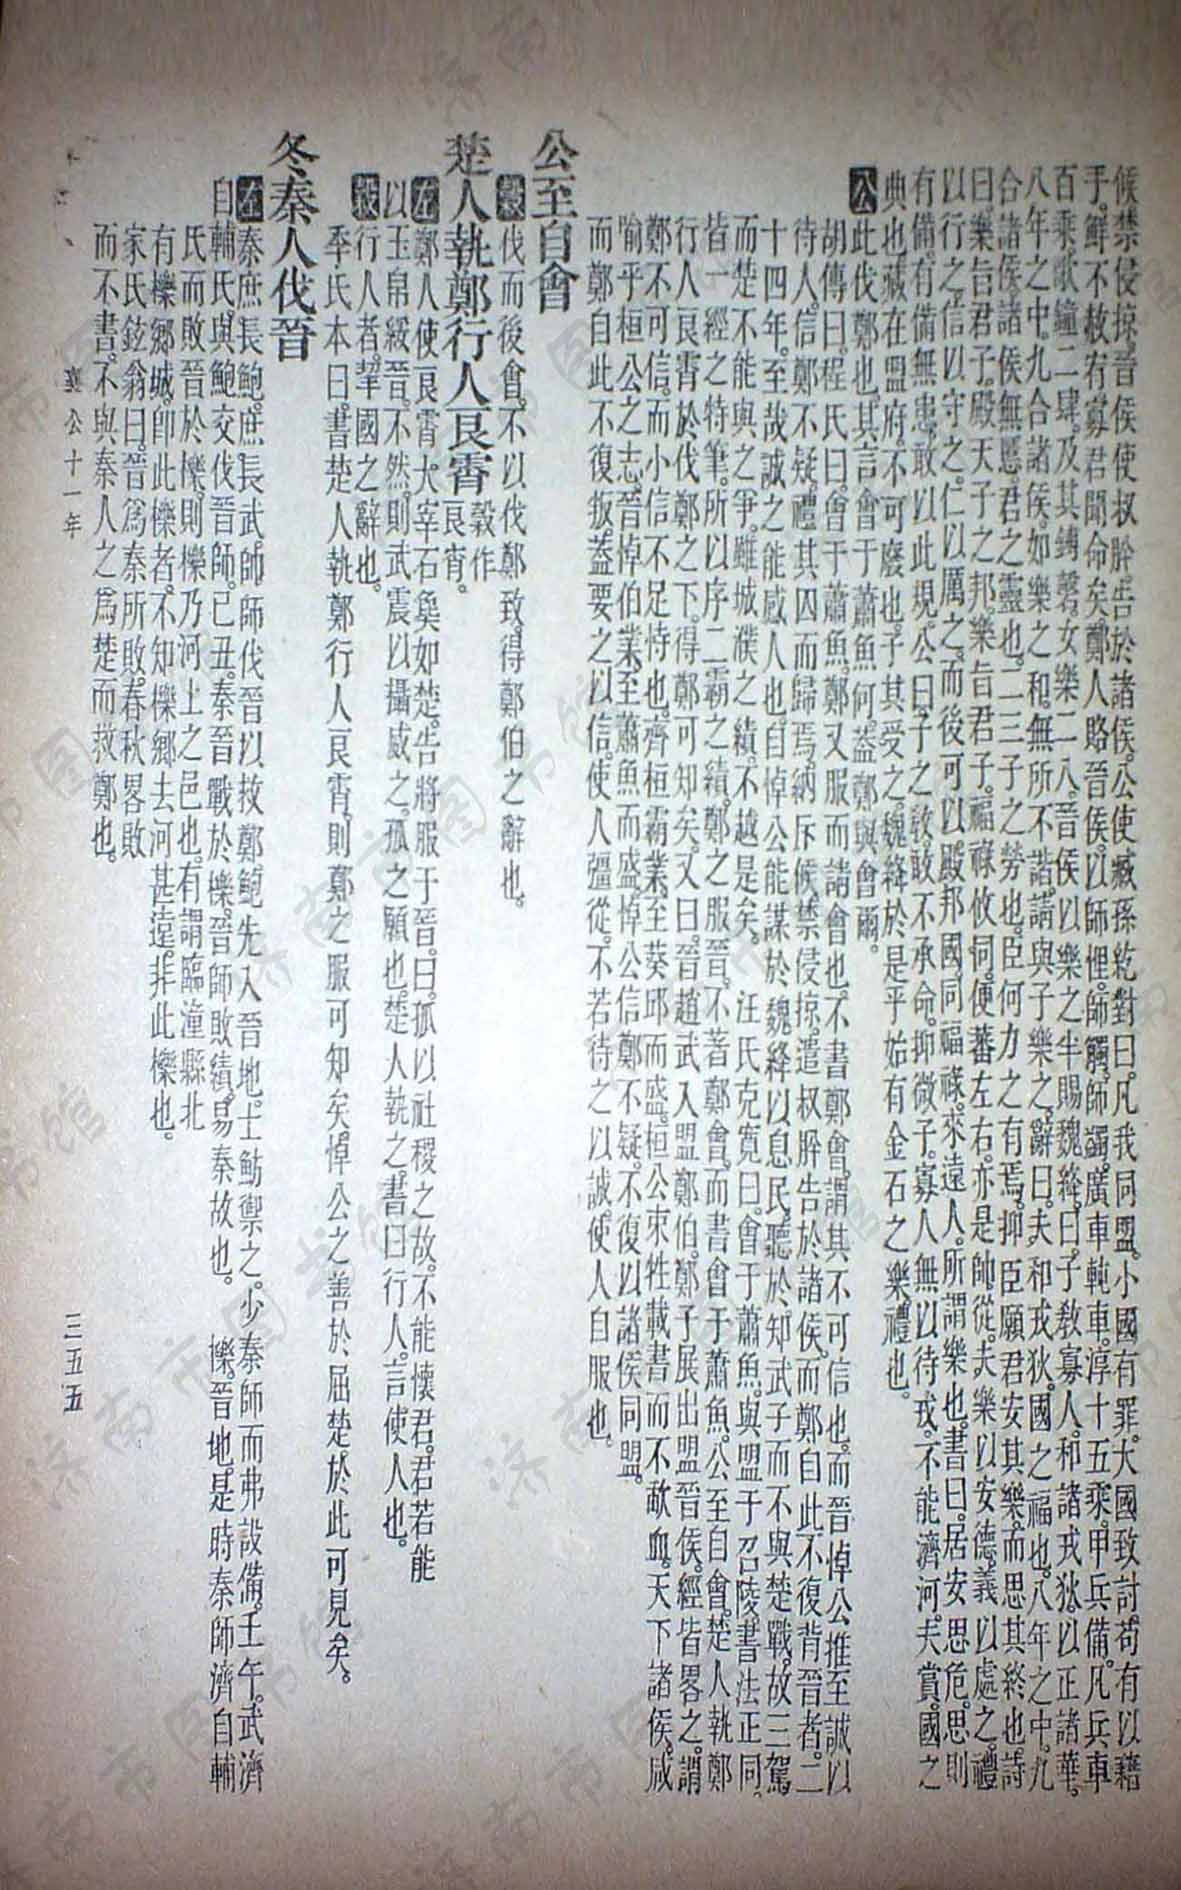 候禁侵掠。晉侯使叔肸告於諸侯。公使臧孫紇對曰。凡我同盟。小國有罪。大國致討。苟有以藉
手。鮮不赦宥。寡君聞命矣。鄭人賂晉侯。以師悝。師觸。師蠲。廣車軘車。淳十五乘。甲兵備。凡兵車
百乘。歌鐘二肆。及其鎛磬。女樂二八。晉侯以樂之半賜魏絳。曰。子教寡人。和諸戎狄。以正諸華。
八年之中。九合諸侯。如樂之和。無所不諧。請與子樂之。辭曰。夫和戎狄。國之福也。八年之中。九
合諸侯。諸侯無慝。君之靈也。二三子之勞也。臣何力之有焉。抑臣願君安其樂。而思其終也。詩
曰。樂旨君子。殿天子之邦。樂旨君子。福祿攸同。便蕃左右。亦是帥從。夫樂以安德。義以處之。禮
以行之。信以守之。仁以厲之。而後可以殿邦國。同福祿。來遠人。所謂樂也。書曰。居安思危。思則
有備。有備無患。敢以此規。公曰。子之教。敢不承命。抑微子。寡人無以待戎。不能濟河。夫賞。國之
典也。藏在盟府。不可廢也。子其受之。魏絳於是乎始有金石之樂。禮也。
公此伐鄭也。其言會于蕭魚何。蓋鄭與會爾。
胡傳曰。程氏曰。會于蕭魚。鄭又服而請會也。不書鄭會。謂其不可信也。而晉悼公推至誠以
待人。信鄭不疑。禮其囚而歸焉。納斥候。禁侵掠。遣叔肸告於諸侯。而鄭自此不復背晉者。二
十四年。至哉誠之能感人也。自悼公能謀於魏絳以息民。聽於知武子而不與楚戰。故三駕
而楚不能與之爭。雖城濮之績。不越是矣。 汪氏克寬曰。會于蕭魚。與盟于召陵。書法正同。
皆一經之特筆。所以序二霸之績。鄭之服晉。不著鄭會。而書會于蕭魚。公至自會。楚人執鄭
行人良霄於伐鄭之下。得鄭可知矣。又曰。晉趙武入盟鄭伯。鄭子展出盟晉侯。經皆畧之。謂
鄭不可信。而小信不足恃也。齊桓霸業。至葵邱而盛。桓公束牲載書而不歃血。天下諸侯。咸
喻乎桓公之志。晉悼伯業。至蕭魚而盛。悼公信鄭不疑。不復以諸侯同盟。
而鄭自此不復叛。蓋要之以信。使人彊從。不若待之以誠。使人自服也。
公至自會
穀伐而後會。不以伐鄭致。得鄭伯之辭也。
楚人執鄭行人良霄 穀作良宵。
左鄭人使良霄。大宰石㚟如楚。告將服于晉。曰。孤以社稷之故。不能懷君。君若能
以玉帛綏晉。不然。則武震以攝威之。孤之願也。楚人執之。書曰行人。言使人也。
穀行人者。挈國之辭也。
季氏本曰。書楚人執鄭行人良霄。則鄭之服可知矣。悼公之善於屈楚。於此可見矣。
冬秦人伐晉
左秦庶長鮑。庶長武。帥師伐晉以救鄭。鮑先入晉地。士魴禦之。少秦師而弗設備。壬午。武濟
自輔氏。與鮑交伐晉師。己丑。秦晉戰於櫟。晉師敗績。易秦故也。 櫟。晉地。是時秦師濟自輔
氏而敗晉於櫟。則櫟乃河上之邑也。有謂臨潼縣北
有櫟鄉城。卽此櫟者。不知櫟鄉去河甚遠。非此櫟也。
家氏鉉翁曰。晉爲秦所敗。春秋畧敗
而不書。不與秦人之爲楚而救鄭也。
襄公十一年
三五五